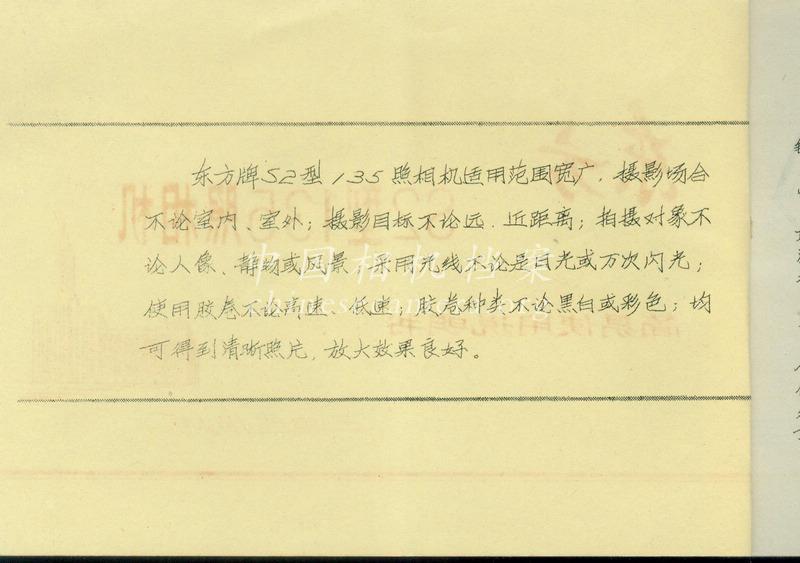 东方牌S2型135照相机适用范围宽广，摄影场合
不论室内、室外；摄影目标不论远、近距离；拍摄对象不
论人像、静物或风景；采用光线不论是日光或万次闪光；
使用胶卷不论高速、低速；胶卷种类不论黑白或彩色；均
可得到清晰照片，放大效果良好。
中国相机档案